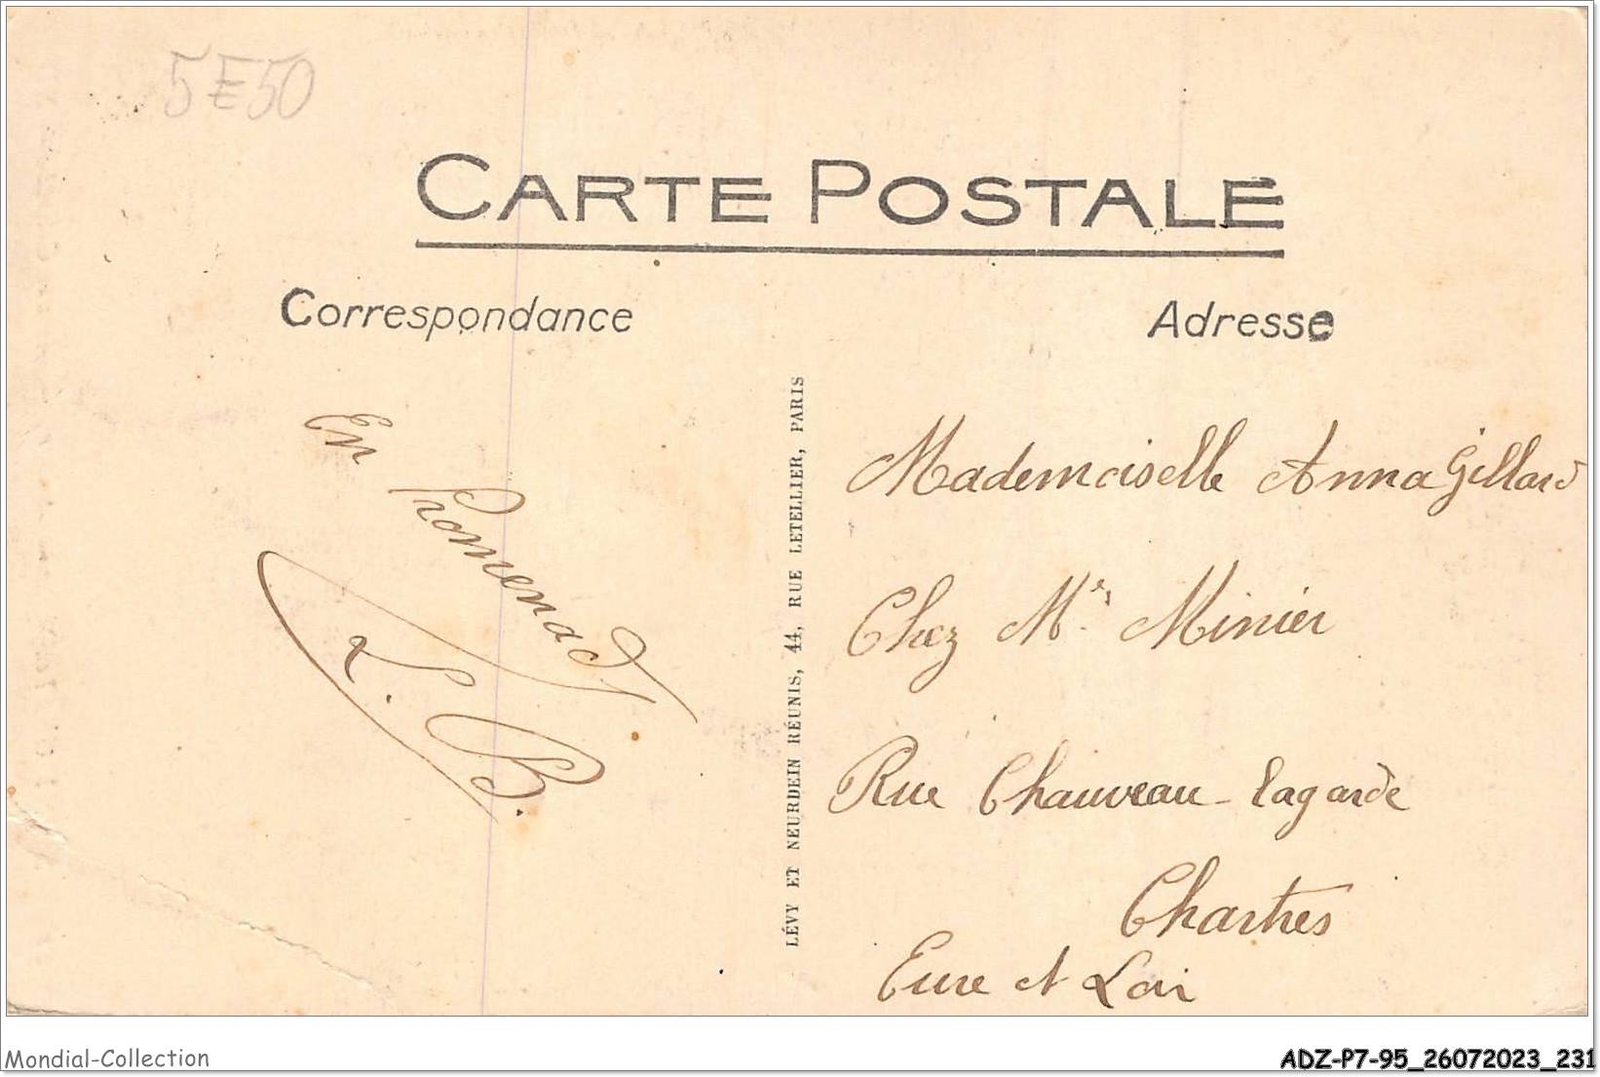 5E50
CARTE POSTALE
Correspondance
Adresse
En
Promenade
L. B.
LÉVY ET NEURDEIN RÉUNIS, 44, RUE LETELLIER, PARIS
Mademoiselle Anna Gillard
Chez Mr Minier
Rue Chauveau-Lagarde
Chartres
Eure et Loir
Mondial-Collection
ADZ-P7-95_26072023_231